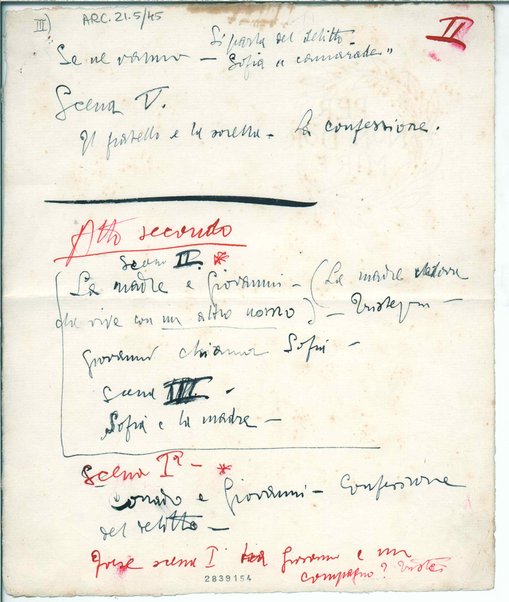 III)
ARC. 21.5/45
II
Se ne vanno — Si parla del delitto —
Sofia "camarade"
Scena V.
Il fratello e la sorella — La confessione.
Atto secondo
Scena II. *
La madre e Giovanni — (La madre vedova
che vive con un altro uomo) —
Giovanni chiama Sofia —
Scena III —
Sofia e la madre —
Scena Iª — *
Corrado e Giovanni — Confessione
del delitto —
Forse scena I Giovanni e un
compagno?
2839154